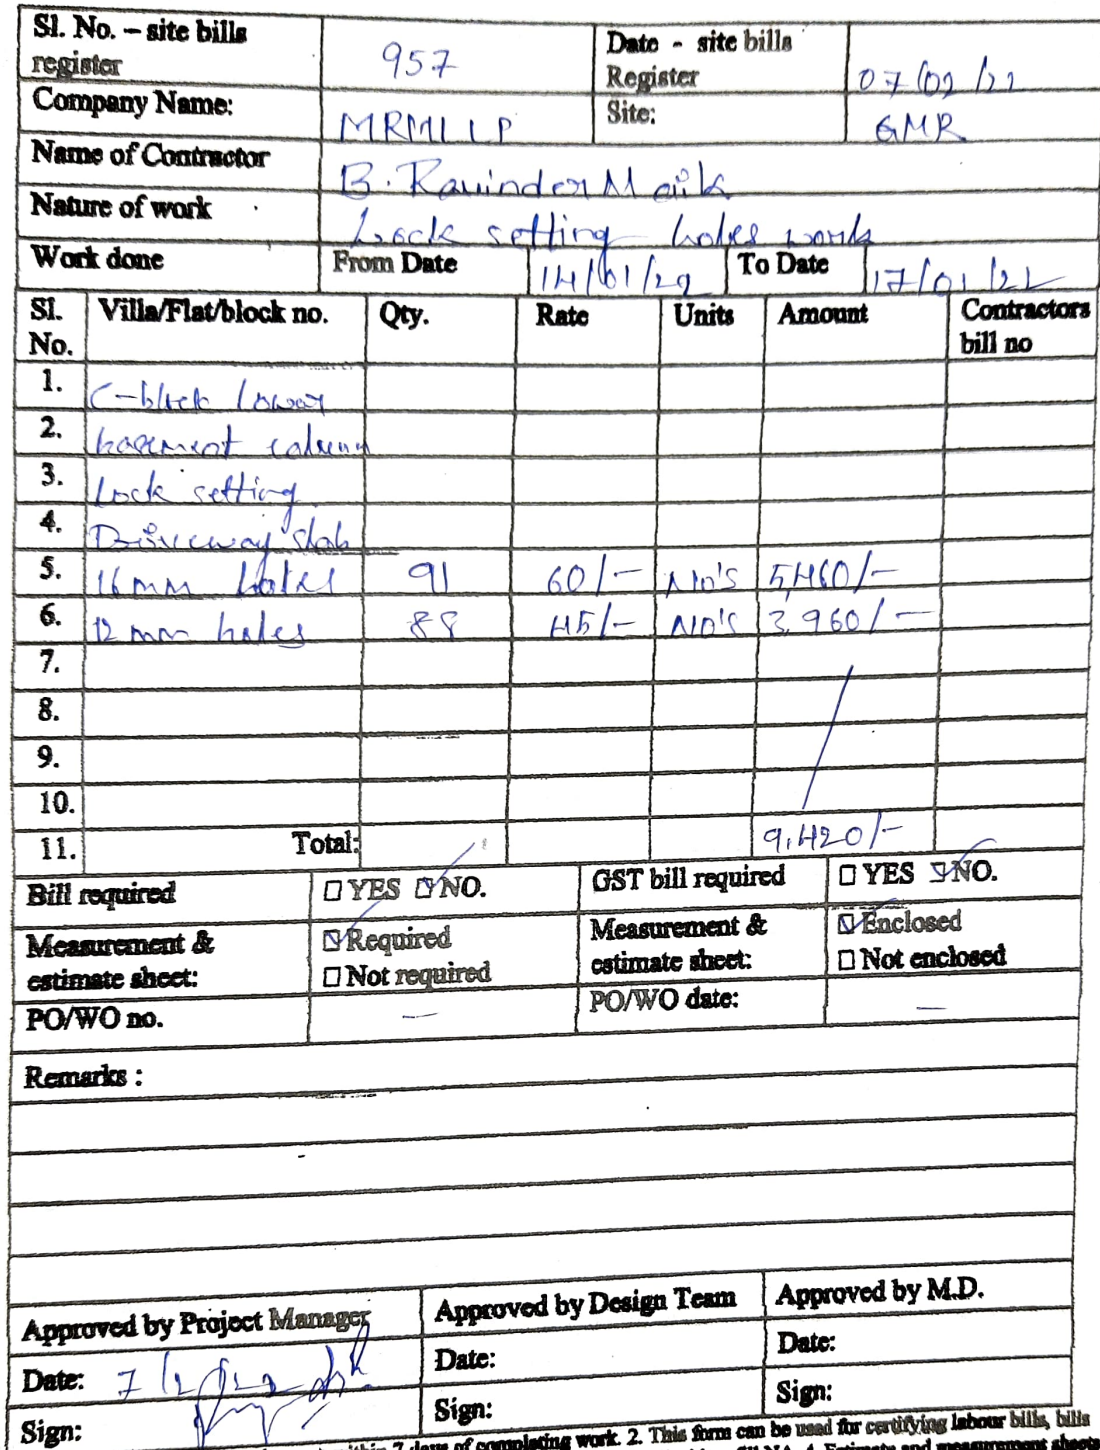 Sl. No. – site bills register 957 Date - site bills Register 07/02/22
Company Name: MRMLLP Site: GMR
Name of Contractor B. Ravinder Naik
Nature of work Lock setting holes work
Work done From Date 14/01/22 To Date 17/01/22
Sl. No. Villa/Flat/block no. Qty. Rate Units Amount Contractors bill no
1. C-block lower
2. basement column
3. Lock setting
4. Driveway slab
5. 16 mm holes 91 60/- No's 5,460/-
6. 12 mm holes 88 45/- No's 3,960/-
7.
8.
9.
10.
11. Total: 9,420/-
Bill required ☐ YES ☑ NO. GST bill required ☐ YES ☑ NO.
Measurement & estimate sheet: ☑ Required ☐ Not required Measurement & estimate sheet: ☑ Enclosed ☐ Not enclosed
PO/WO no. — PO/WO date: —
Remarks :
Approved by Project Manager Approved by Design Team Approved by M.D.
Date: 7/2/22 Date: Date:
Sign: Sign: Sign:
7 days of completing work. 2. This form can be used for certifying labour bills, bills
4. Estimate and measurement sheets